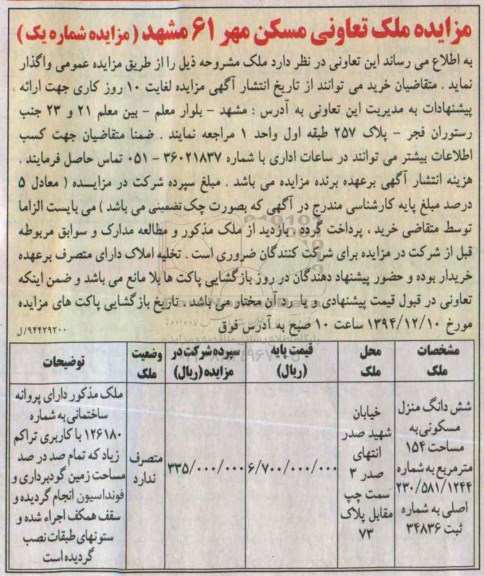 مزایده ملک تعاونی مسکن مهر ۶۱ مشهد ( مزایده شماره یک )
به اطلاع می رساند این تعاونی در نظر دارد ملک مشروحه ذیل را از طریق مزایده عمومی واگذار
نماید . متقاضیان خرید می توانند از تاریخ انتشار آگهی مزایده لغایت ۱۰ روز کاری جهت ارائه
پیشنهادات به مدیریت این تعاونی به آدرس : مشهد - بلوار معلم - بین معلم ۲۱ و ۲۳ جنب
رستوران فجر - پلاک ۲۵۷ طبقه اول واحد ۱ مراجعه نمایند . ضمنا متقاضیان جهت کسب
اطلاعات بیشتر می توانند در ساعات اداری با شماره ۳۶۰۲۱۸۳۷ - ۰۵۱ تماس حاصل فرمایند .
هزینه انتشار آگهی برعهده برنده مزایده می باشد . مبلغ سپرده شرکت در مزایده ( معادل ۵
درصد مبلغ پایه کارشناسی مندرج در آگهی که بصورت چک تضمینی می باشد ) می بایست الزاما
توسط متقاضی خرید ، پرداخت گردد . بازدید از ملک مذکور و مطالعه مدارک و سوابق مربوطه
قبل از شرکت در مزایده برای شرکت کنندگان ضروری است . تخلیه املاک دارای متصرف برعهده
خریدار بوده و حضور پیشنهاد دهندگان در روز بازگشایی پاکت ها بلا مانع می باشد و ضمن اینکه
تعاونی در قبول قیمت پیشنهادی و یا رد آن مختار می باشد . تاریخ بازگشایی پاکت های مزایده
مورخ ۱۳۹۴/۱۲/۱۰ ساعت ۱۰ صبح به آدرس فوق
۹۴۴۲۹۲۰۰/ل
مشخصات ملک
محل ملک
قیمت پایه (ریال)
سپرده شرکت در مزایده (ریال)
وضعیت ملک
توضیحات
شش دانگ منزل
مسکونی به
مساحت ۱۵۴
مترمربع به شماره
۲۳۰/۵۸۱/۱۲۴۴
اصلی به شماره
ثبت ۳۴۸۳۶
خیابان
شهید صدر
انتهای
صدر ۳
سمت چپ
مقابل پلاک
۷۳
۶/۷۰۰/۰۰۰/۰۰۰
۳۳۵/۰۰۰/۰۰۰
متصرف
ندارد
ملک مذکور دارای پروانه
ساختمانی به شماره
۱۲۶۱۸۰ با کاربری تراکم
زیاد که تمام صد در صد
مساحت زمین گودبرداری و
فونداسیون انجام گردیده و
سقف همکف اجراء شده و
ستونهای طبقات نصب
گردیده است